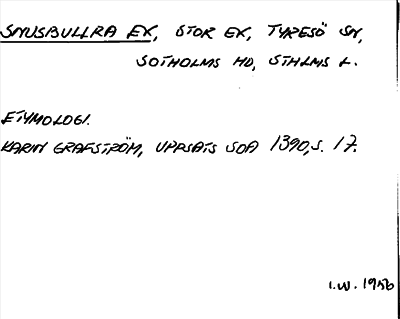 SMUSBULLRA EK, STOR EK, TYRESÖ SN,
SOTHOLMS HD, STHLMS L.
ETYMOLOGI.
KARIN GRAFSTRÖM, UPPSATS SOA 1390, S. 17.
I.W. 1956